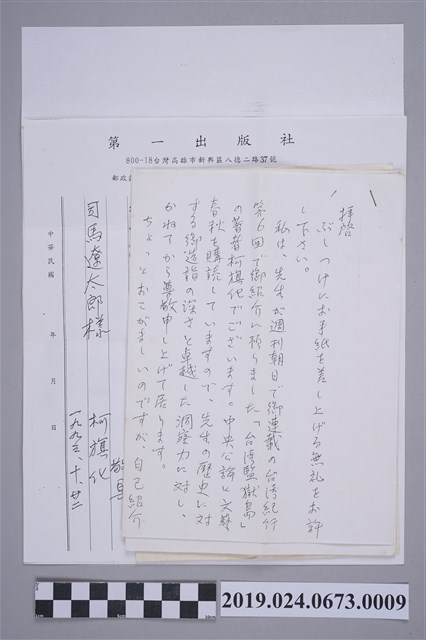 第一出版社
800-18台灣高雄市新興區八德二路37號
郵政
拝啓
ぶしつけにお手紙を差し上げる無礼をお許
し下さい。
私は、先生が週刊朝日で御連載の台湾紀行
第6回で御紹介に預りました「台湾監獄島」
の著者柯旗化でございます。中央公論と文藝
春秋を購読していますので、先生の歴史に対
する御造詣の深さと卓越した洞察力に対し、
かねてから尊敬申し上げて居ります。
ちょっとおこがましいのですが、自己紹介
敬具
一九九三、十、廿二
柯旗化
司馬遼太郎様
中華民國 年 月 日
2019.024.0673.0009